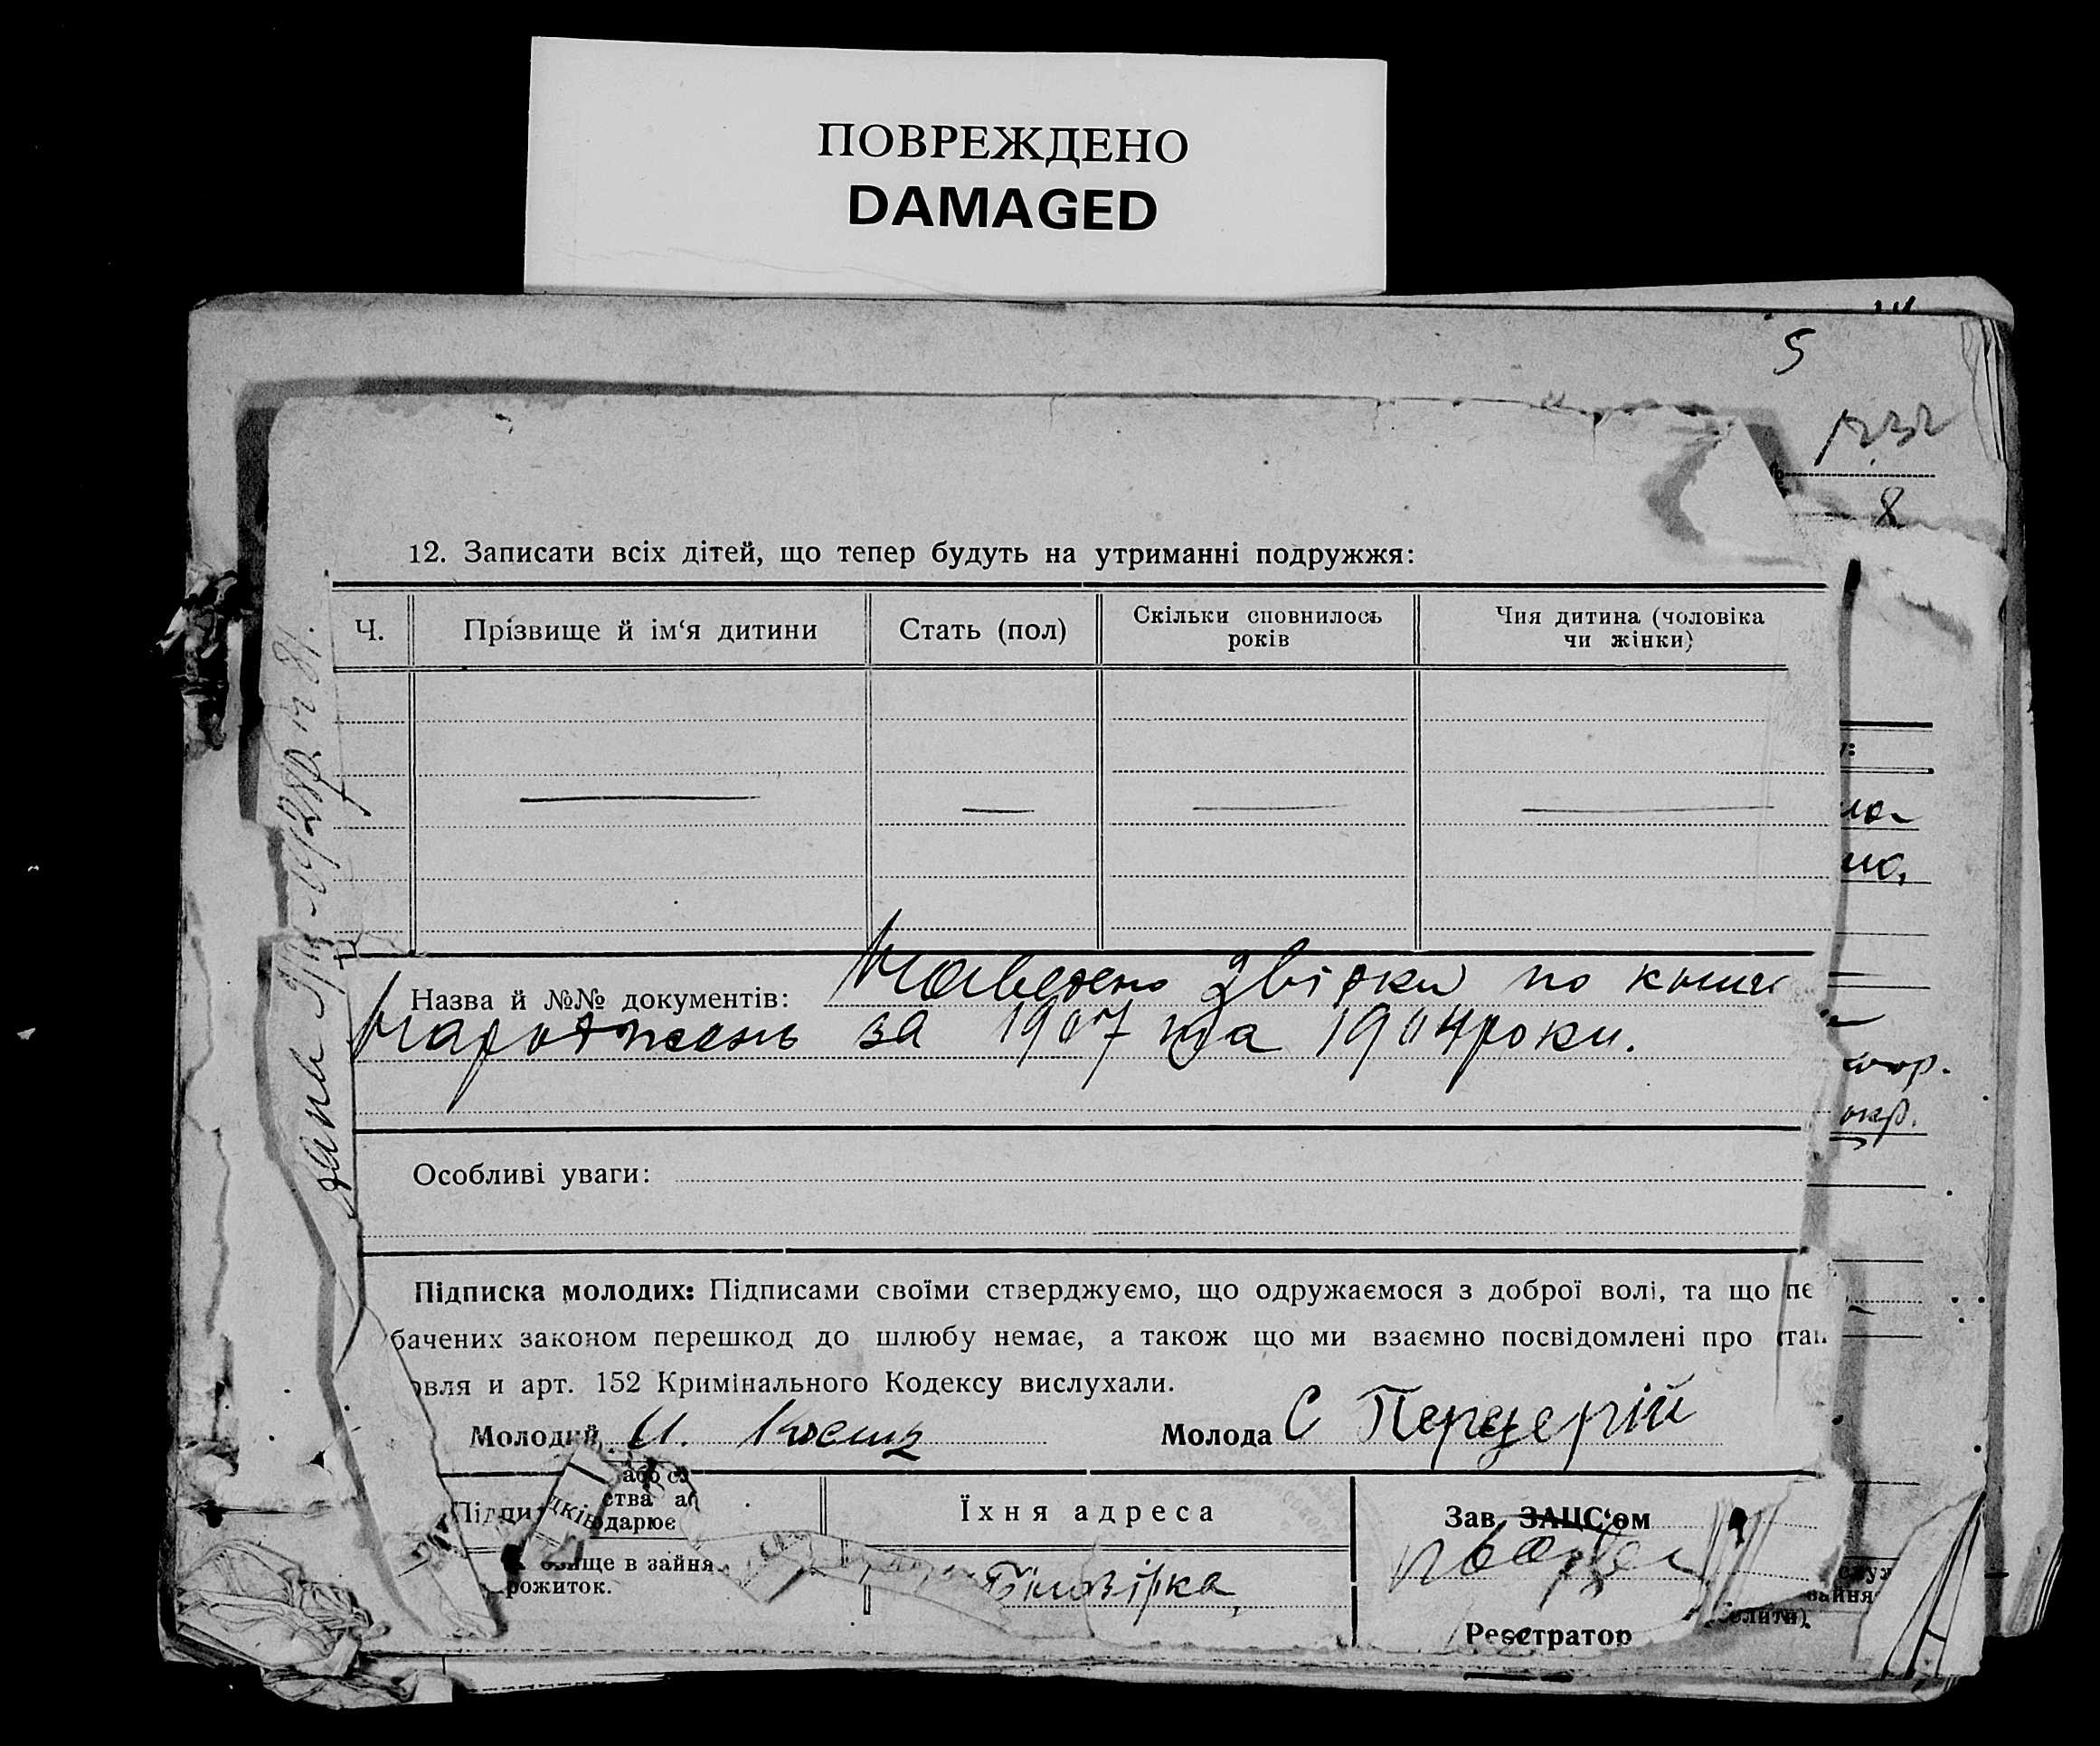 ПОВРЕЖДЕНО
DAMAGED
5
8
12. Записати всіх дітей, що тепер будуть на утриманні подружжя:
Ч.
Прізвище й ім‘я дитини
Стать (пол)
Скільки сповнилось
років
Чия дитина (чоловіка
чи жінки)
Назва й №№ документів: Наведено звірки по книзі
народжень за 1907 та 1904 роки.
окр.
Особливі уваги:
Підписка молодих: Підписами своїми стверджуємо, що одружаємося з доброї волі, та що пе
бачених законом перешкод до шлюбу немає, а також що ми взаємно посвідомлені про стан
овля и арт. 152 Кримінального Кодексу вислухали.
Молодий И.
Молода С Перцерій
або сл
ства аб
Підпи
дків
одарює
Їхня адреса
Зав. ЗАЦС‘ом
ище в зайня
рожиток.
Білозірка,
Реєстратор
служ
зайня
олити)